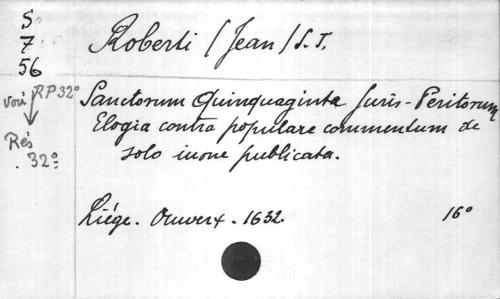 S
7
56
Roberti / Jean / S. J.
voir RP 32°
Rés
. 32°
Sanctorum Quinquaginta Juris-Peritorum
Elogia contra populare commentum de
solo iuone publicata.
Liége. Ouwerx. 1632.
16°